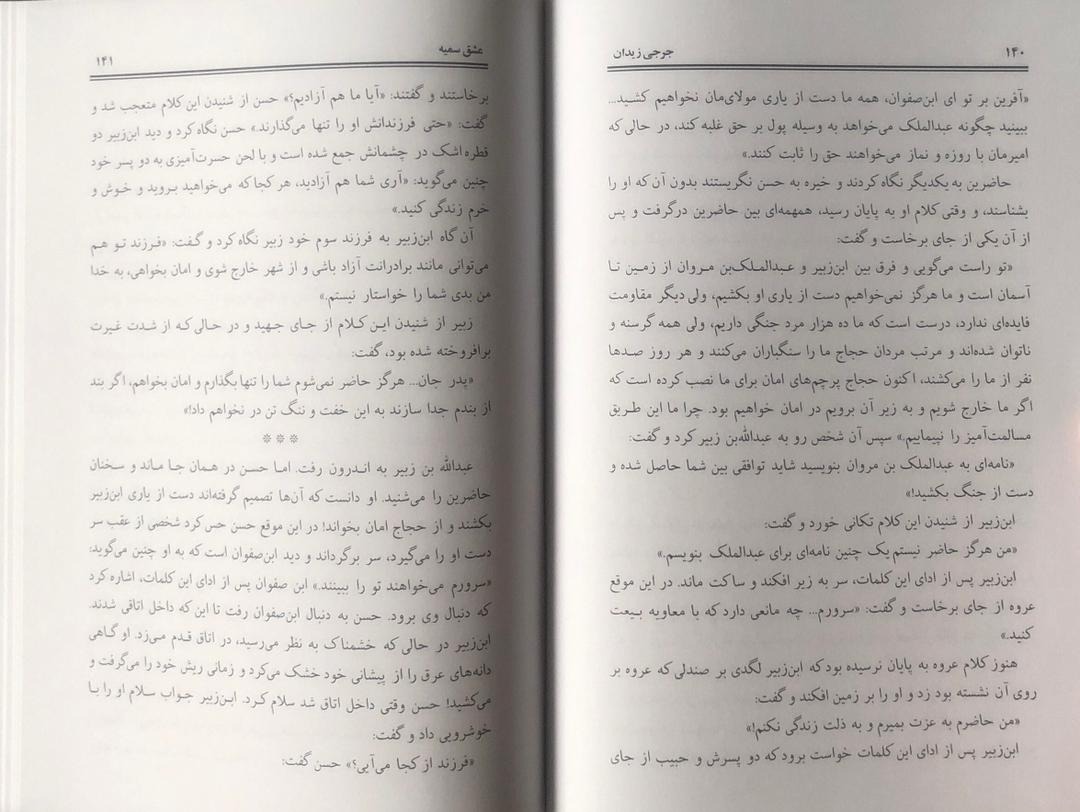 ۱۴۰
جرجی زیدان
«آفرین بر تو ای ابن‌صفوان، همه ما دست از یاری مولای‌مان نخواهیم کشید...
ببینید چگونه عبدالملک می‌خواهد به وسیله پول بر حق غلبه کند، در حالی که
امیرمان با روزه و نماز می‌خواهند حق را ثابت کنند.»
حاضرین به یکدیگر نگاه کردند و خیره به حسن نگریستند بدون آن که او را
بشناسند، و وقتی کلام او به پایان رسید، همهمه‌ای بین حاضرین درگرفت و پس
از آن یکی از جای برخاست و گفت:
«تو راست می‌گویی و فرق بین ابن‌زبیر و عبدالملک‌بن مروان از زمین تا
آسمان است و ما هرگز نمی‌خواهیم دست از یاری او بکشیم، ولی دیگر مقاومت
فایده‌ای ندارد، درست است که ما ده هزار مرد جنگی داریم، ولی همه گرسنه و
ناتوان شده‌اند و مرتب مردان حجاج ما را سنگباران می‌کنند و هر روز صدها
نفر از ما را می‌کشند، اکنون حجاج پرچم‌های امان برای ما نصب کرده است که
اگر ما خارج شویم و به زیر آن برویم در امان خواهیم بود. چرا ما این طریق
مسالمت‌آمیز را نپیماییم.» سپس آن شخص رو به عبدالله‌بن زبیر کرد و گفت:
«نامه‌ای به عبدالملک بن مروان بنویسید شاید توافقی بین شما حاصل شده و
دست از جنگ بکشید!»
ابن‌زبیر از شنیدن این کلام تکانی خورد و گفت:
«من هرگز حاضر نیستم یک چنین نامه‌ای برای عبدالملک بنویسم.»
ابن‌زبیر پس از ادای این کلمات، سر به زیر افکند و ساکت ماند. در این موقع
عروه از جای برخاست و گفت: «سرورم... چه مانعی دارد که با معاویه بیعت
کنید.»
هنوز کلام عروه به پایان نرسیده بود که ابن‌زبیر لگدی بر صندلی که عروه بر
روی آن نشسته بود زد و او را بر زمین افکند و گفت:
«من حاضرم به عزت بمیرم و به ذلت زندگی نکنم!»
ابن‌زبیر پس از ادای این کلمات خواست برود که دو پسرش و حبیب از جای
عشق سمیه
۱۴۱
برخاستند و گفتند: «آیا ما هم آزادیم؟» حسن از شنیدن این کلام متعجب شد و
گفت: «حتی فرزندانش او را تنها می‌گذارند.» حسن نگاه کرد و دید ابن‌زبیر دو
قطره اشک در چشمانش جمع شده است و با لحن حسرت‌آمیزی به دو پسر خود
چنین می‌گوید: «آری شما هم آزادید، هر کجا که می‌خواهید بروید و خوش و
خرم زندگی کنید.»
آن گاه ابن‌زبیر به فرزند سوم خود زبیر نگاه کرد و گفت: «فرزند تو هم
می‌توانی مانند برادرانت آزاد باشی و از شهر خارج شوی و امان بخواهی، به خدا
من بدی شما را خواستار نیستم.»
زبیر از شنیدن این کلام از جای جهید و در حالی که از شدت غیرت
برافروخته شده بود، گفت:
«پدر جان... هرگز حاضر نمی‌شوم شما را تنها بگذارم و امان بخواهم، اگر بند
از بندم جدا سازند به این خفت و ننگ تن در نخواهم داد!»
* * *
عبدالله بن زبیر به اندرون رفت. اما حسن در همان جا ماند و سخنان
حاضرین را می‌شنید. او دانست که آن‌ها تصمیم گرفته‌اند دست از یاری ابن‌زبیر
بکشند و از حجاج امان بخواند! در این موقع حسن حس کرد شخصی از عقب سر
دست او را می‌گیرد، سر برگرداند و دید ابن‌صفوان است که به او چنین می‌گوید:
«سرورم می‌خواهند تو را ببینند.» ابن صفوان پس از ادای این کلمات، اشاره کرد
که دنبال وی برود. حسن به دنبال ابن‌صفوان رفت تا این که داخل اتاقی شدند.
ابن‌زبیر در حالی که خشمناک به نظر می‌رسید، در اتاق قدم می‌زد. او گاهی
دانه‌های عرق را از پیشانی خود خشک می‌کرد و زمانی ریش خود را می‌گرفت و
می‌کشید! حسن وقتی داخل اتاق شد سلام کرد. ابن‌زبیر جواب سلام او را با
خوشرویی داد و گفت:
«فرزند از کجا می‌آیی؟» حسن گفت: